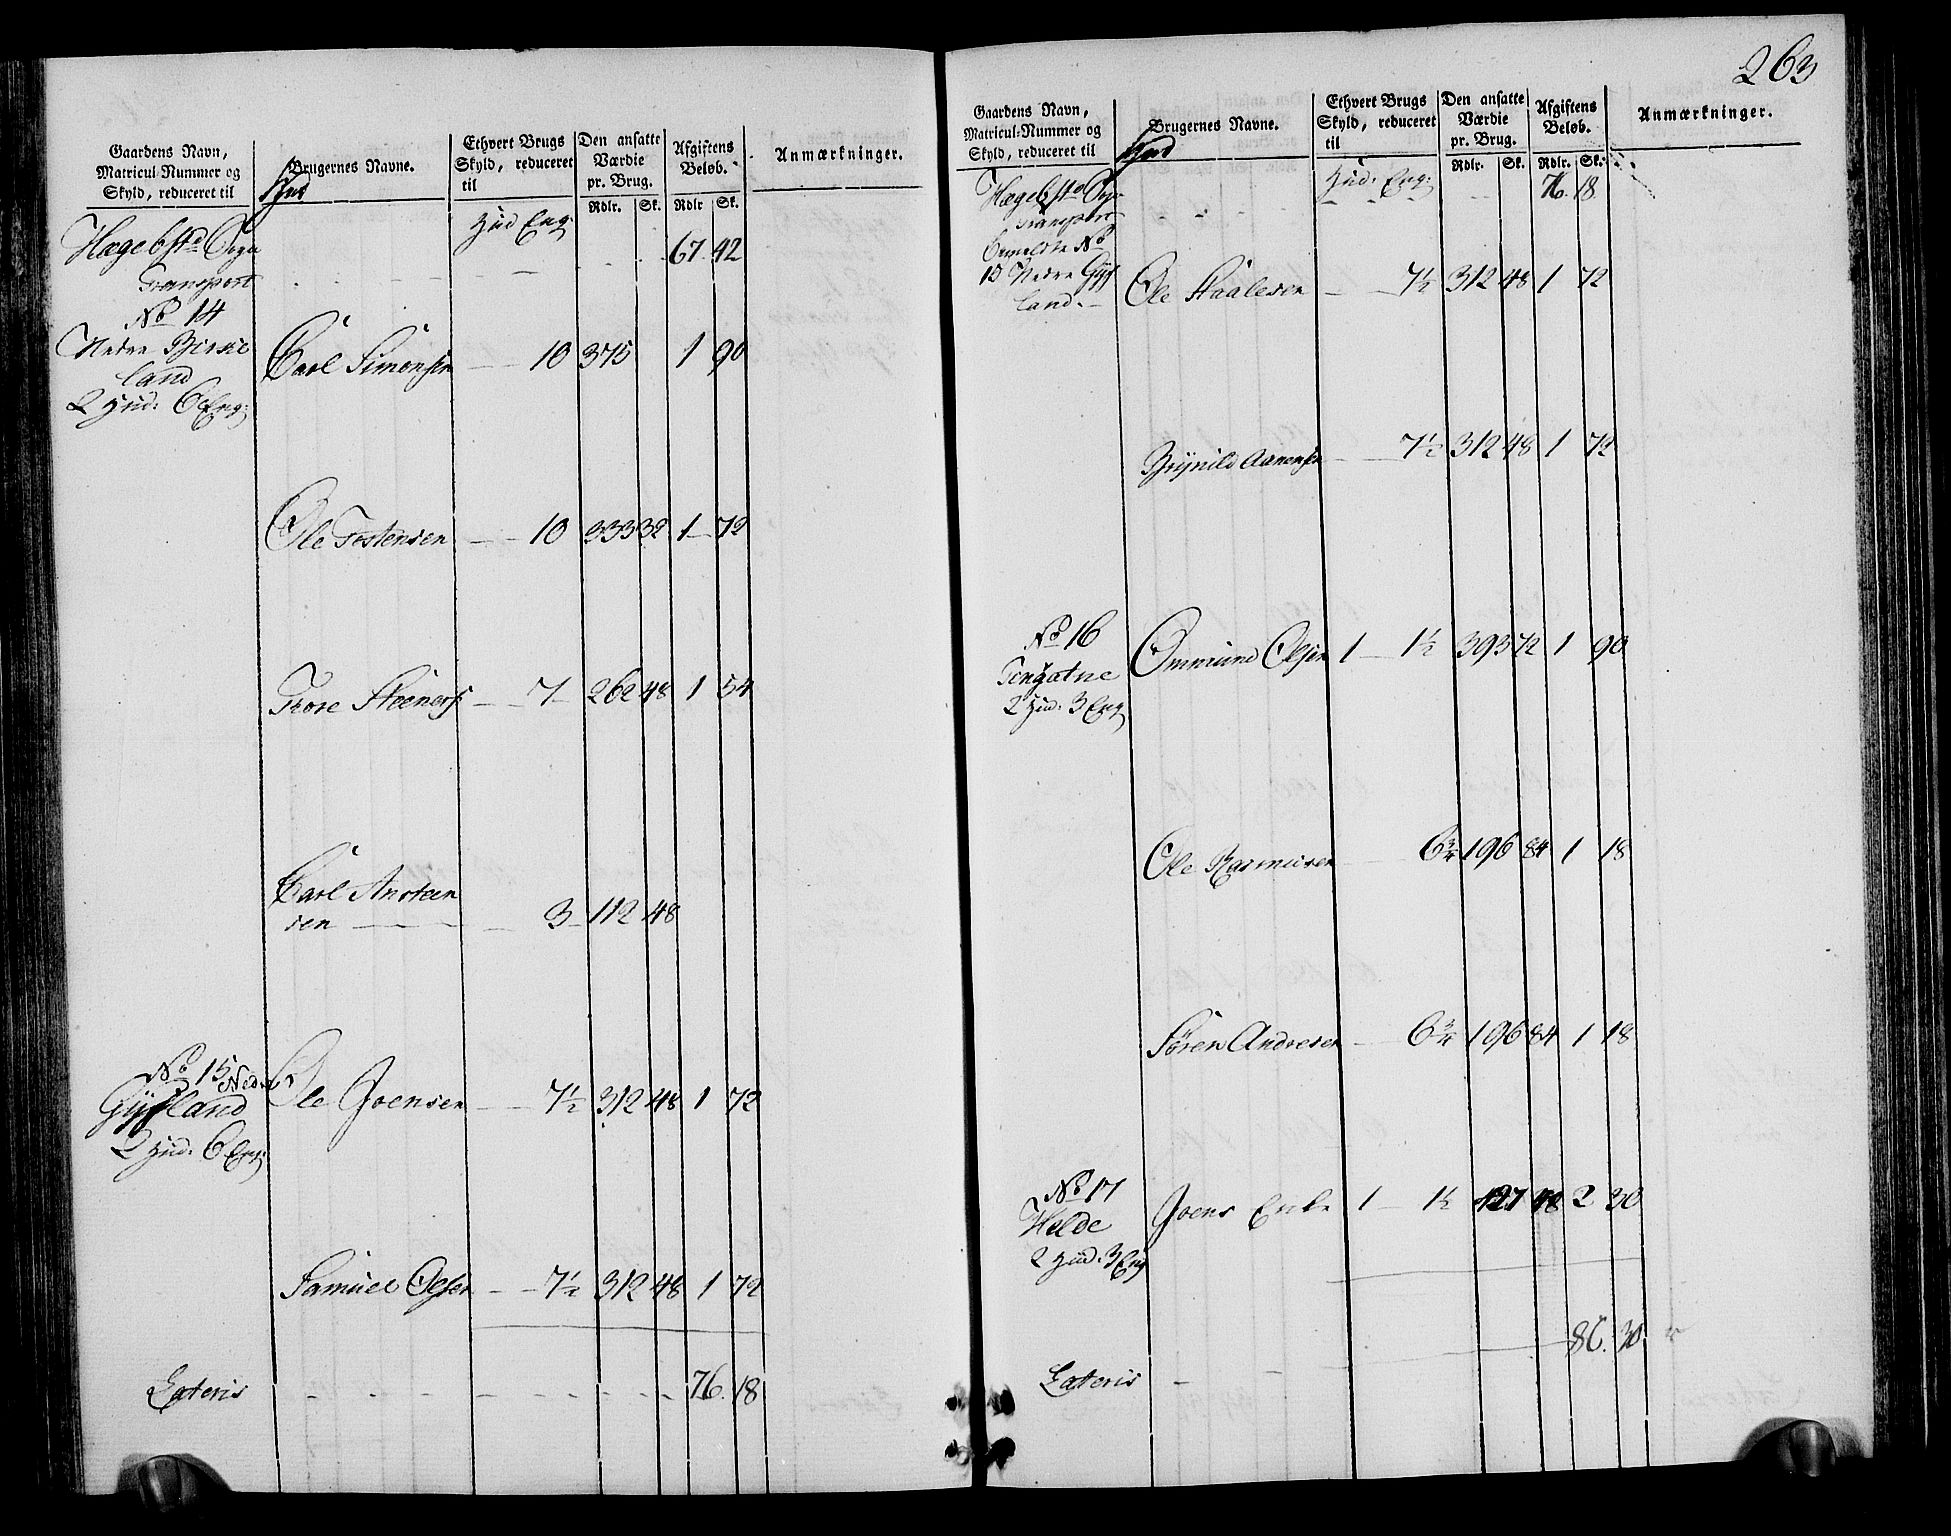 Gaardens Navn,
Matricul-Nummer og
Skyld, reduceret til
Brugernes Navne.
Ethvert Brugs
Skyld, reduceret
til
Den ansatte
Værdie
pr. Brug.
Rdlr. Sk.
Afgiftens
Beløb.
Rdlr Sk.
Anmærkninger.
Hud Eng:
Hægebstd Sogn
Transport 67. 42
No 14
Nedre Birke
land
2 Hud: 6 Eng:
Carl Simonsen 10 375 1 90
Ole Tostensen 10 333 32 1 72
Tore Steeners 7 262 48 1 54
Carl Ansteen
sen 3 112 48
No 15 Nedre
Gysland
2 Hud: 6 Eng:
Ole Joensen 7½ 312 48 1 72
Samuel Olsen 7½ 312 48 1 72
Lateris 76. 18
263
Gaardens Navn,
Matricul-Nummer og
Skyld, reduceret til
Brugernes Navne.
Ethvert Brugs
Skyld, reduceret
til
Den ansatte
Værdie
pr. Brug.
Rdlr. Sk.
Afgiftens
Beløb.
Rdlr. Sk.
Anmærkninger.
Hud: Eng:
Hægebstd Sogn
Transport 76. 18
Bemeldte No
15 Nedre Gys
land
Ole Staalesen 7½ 312 48 1 72
Brynild Aanensen 7½ 312 48 1 72
No 16
Tingatne
2 Hud: 3 Eng
Ommund Olsen 1 1½ 393 72 1 90
Ole Rasmusen 6¾ 196 84 1 18
Sören Andresen 6¾ 196 84 1 18
No 17
Helde
2 Hud: 3 Eng
Joens Enke 1 1½ 427 48 2 30
86. 30
Lateris